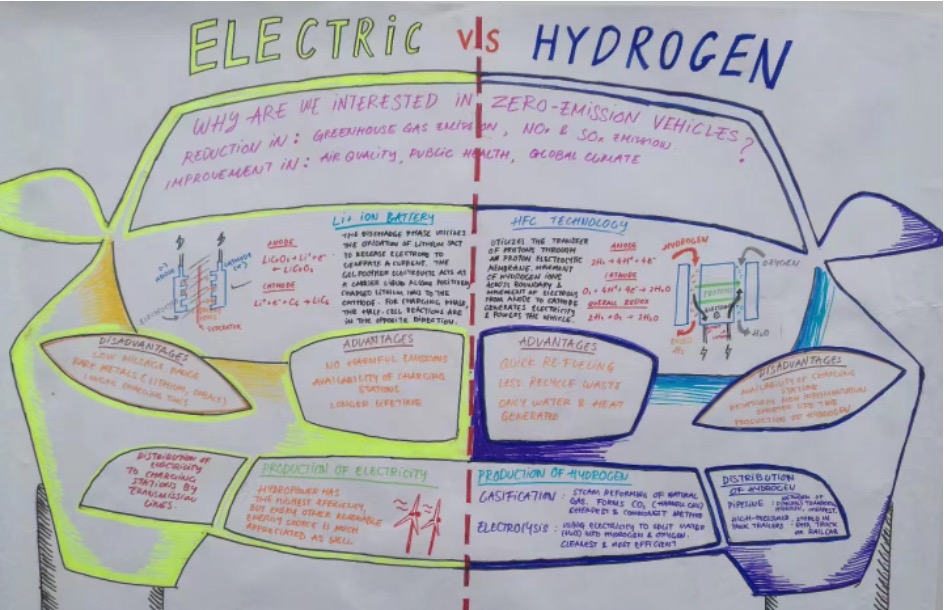 ELECTRIC vs HYDROGEN
WHY ARE WE INTERESTED IN ZERO-EMISSION VEHICLES?
REDUCTION IN: GREENHOUSE GAS EMISSION, NOx & SOx EMISSION
IMPROVEMENT IN: AIR QUALITY, PUBLIC HEALTH, GLOBAL CLIMATE
Li+ ION BATTERY
THE DISCHARGE PHASE UTILIZES
THE OXIDATION OF LITHIUM SALT
TO RELEASE ELECTRONS TO
GENERATE A CURRENT. THE
ELECTROLYTE ACTS AS
A CARRIER LIQUID
CHARGED LITHIUM IONS TO THE
CATHODE. FOR CHARGING PHASE,
THE HALF-CELL REACTIONS ARE
IN THE OPPOSITE DIRECTION.
ANODE
CATHODE
ANODE
CATHODE
SEPARATOR
HFC TECHNOLOGY
UTILIZES THE TRANSFER
OF PROTONS THROUGH
AN PROTON ELECTROLYTIC
MEMBRANE. MOVEMENT
OF HYDROGEN IONS
ACROSS BOUNDARY &
MOVEMENT OF ELECTRONS
FROM ANODE TO CATHODE
GENERATES ELECTRICITY
& POWERS THE VEHICLE.
ANODE
CATHODE
OVERALL REDOX
HYDROGEN
OXYGEN
PROTONS
EXCESS
H₂
H₂O
DISADVANTAGES
LOW MILEAGE RANGE
RARE METALS (LITHIUM, COBALT)
LONGER CHARGING TIMES
ADVANTAGES
NO HARMFUL EMISSIONS
AVAILABILITY OF CHARGING
STATIONS
LONGER LIFETIME
ADVANTAGES
QUICK RE-FUELING
LESS RECYCLE WASTE
ONLY WATER & HEAT
GENERATED
DISADVANTAGES
AVAILABILITY OF CHARGING
STATIONS
PRODUCTION OF HYDROGEN
DISTRIBUTION OF
ELECTRICITY
TO CHARGING
STATIONS BY
TRANSMISSION
LINES.
PRODUCTION OF ELECTRICITY
HYDROPOWER HAS
THE HIGHEST EFFICIENCY,
BUT EVERY OTHER RENEWABLE
ENERGY SOURCE IS MUCH
APPRECIATED AS WELL.
PRODUCTION OF HYDROGEN
GASIFICATION: STEAM REFORMING OF NATURAL
GAS. FORMS CO₂ (HARMFUL GHG)
CHEAPEST & COMMONEST METHOD
ELECTROLYSIS: USING ELECTRICITY TO SPLIT WATER
(H₂O) INTO HYDROGEN & OXYGEN.
CLEANEST & MOST EFFICIENT
DISTRIBUTION
OF HYDROGEN
PIPELINE: NETWORK OF
HIGH-PRESSURE: STORED IN
TANK TRAILERS: TRUCK
OR RAILCAR